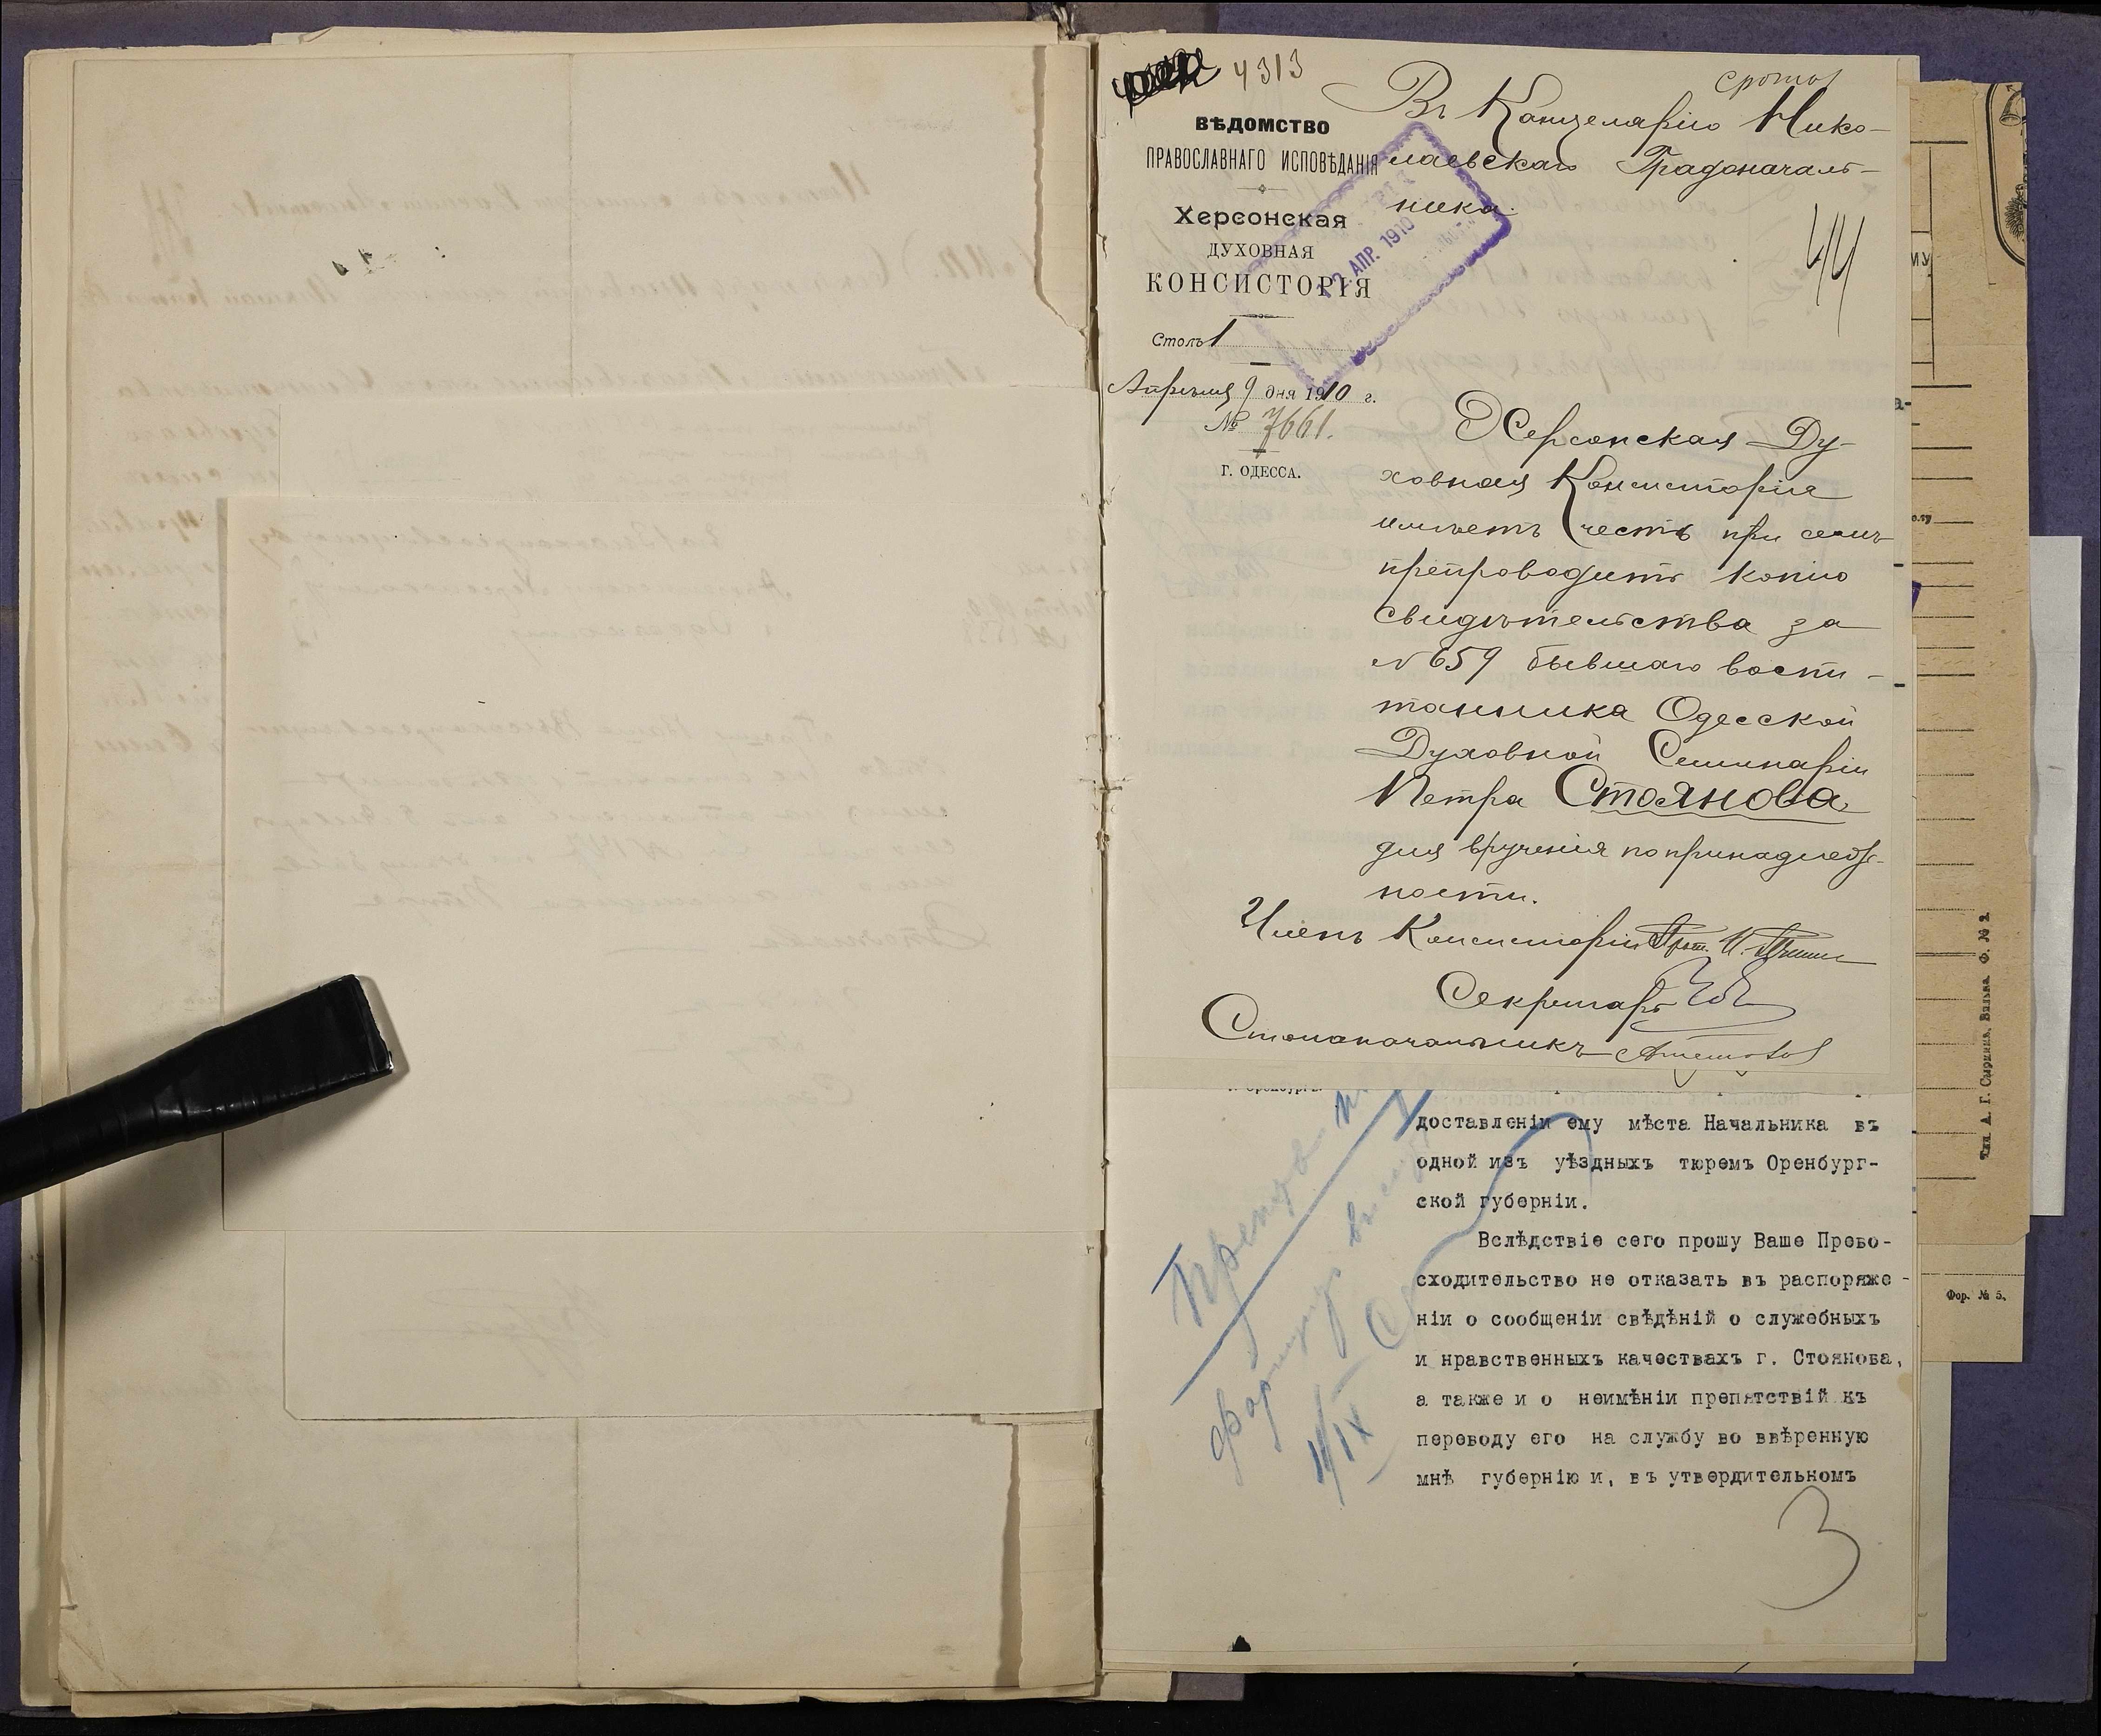 4313
срочно
Въ Канцелярію Нико-
лаевскаго Градоначаль-
ника.
ВѢДОМСТВО
ПРАВОСЛАВНАГО ИСПОВѢДАНІЯ
Херсонская
ДУХОВНАЯ
КОНСИСТОРІЯ
Столъ 1
Апрѣля 9 дня 1910 г.
№ 7661.
Г. ОДЕССА.
12 АПР. 1910
44
Херсонская Ду-
ховная Консисторія
имѣетъ честь при семъ
препроводить копію
свидѣтельства за
№ 659 бывшаго воспи-
танника Одесской
Духовной Семинаріи
Петра Стоянова
для вручения по принадлеж-
ности.
Членъ Консисторіи Прот.
Секретарь
Столоначальникъ
доставленіи ему мѣста Начальника въ
одной изъ уѣздныхъ тюремъ Оренбург-
ской губерніи.
Вслѣдствіе сего прошу Ваше Прево-
сходительство не отказать въ распоряже-
ніи о сообщеніи свѣдѣній о служебныхъ
и нравственныхъ качествахъ г. Стоянова,
а также и о неимѣніи препятствій къ
переводу его на службу во ввѣренную
мнѣ губернію и, въ утвердительномъ
3
Тип. А. Г. Сыркина, Вильна. Ф. № 2.
Фор. № 5.